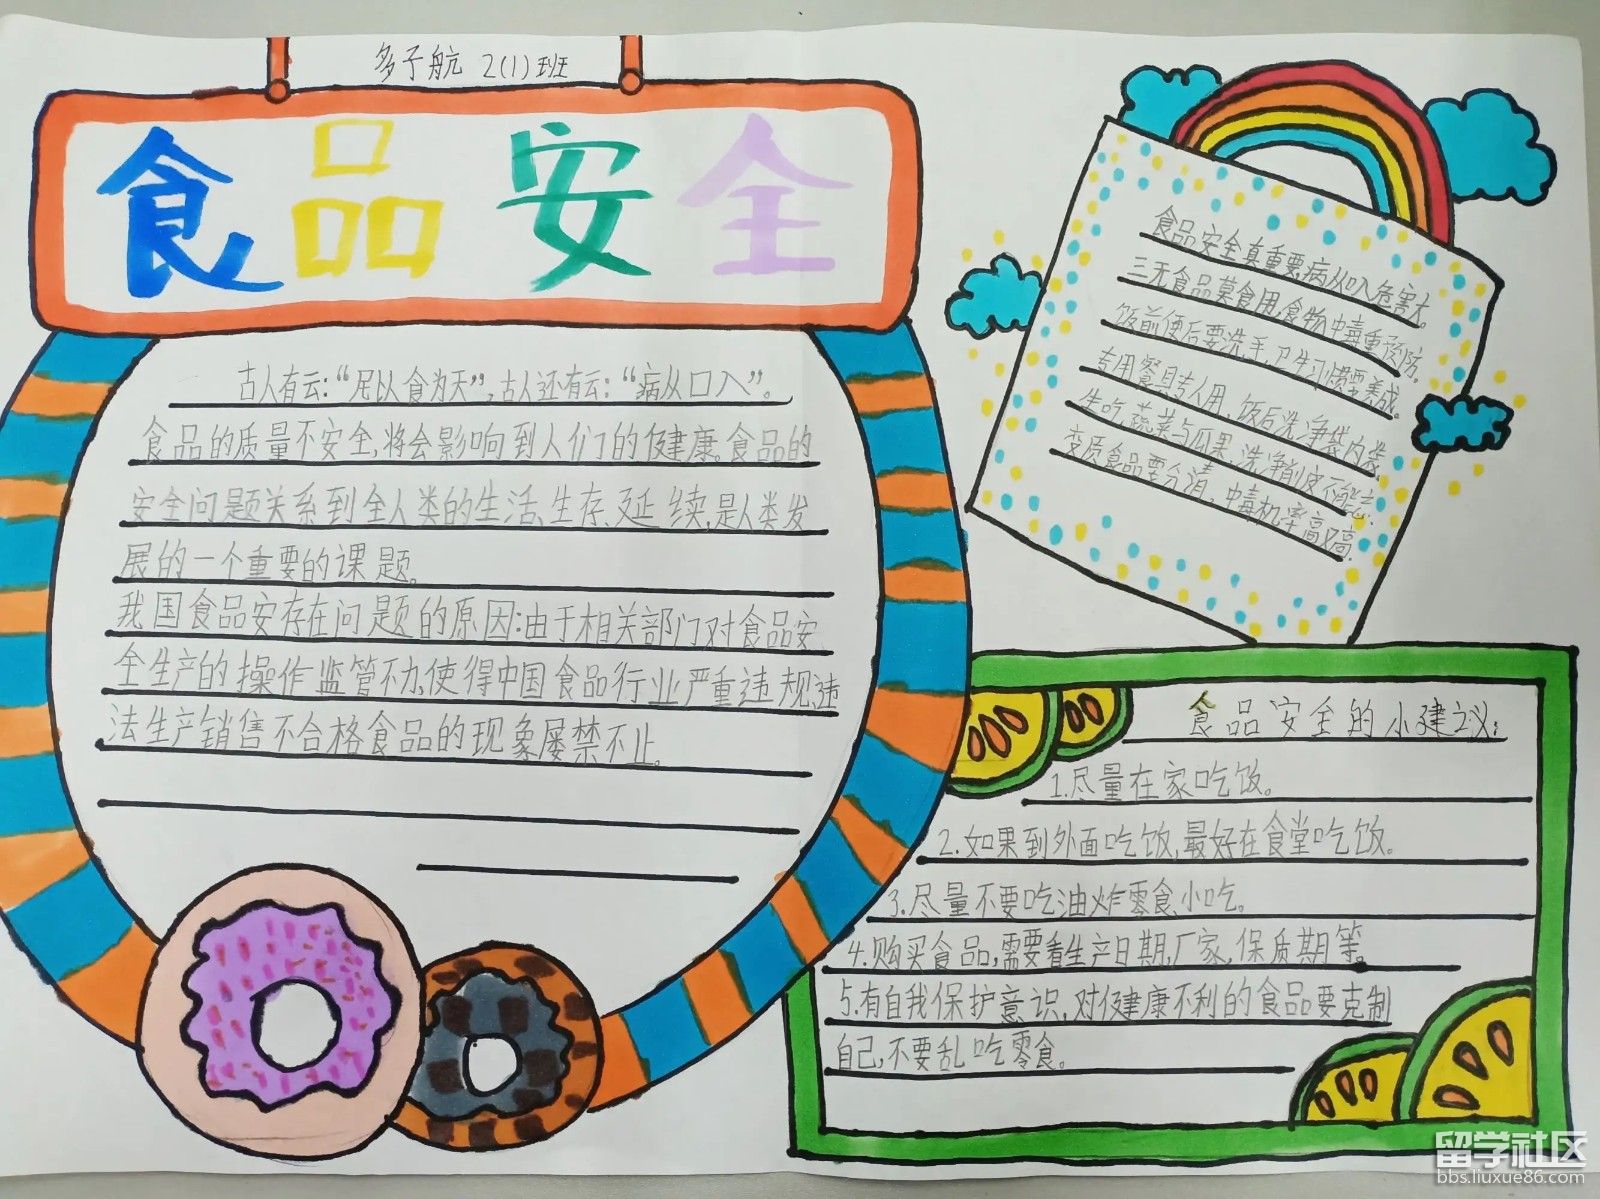 多子航 2(1)班
食品安全
古人有云:“民以食为天”,古人还有云:“病从口入”。
食品的质量不安全,将会影响到人们的健康。食品的
安全问题关系到全人类的生活、生存、延续,是人类发
展的一个重要的课题。
我国食品安存在问题的原因:由于相关部门对食品安
全生产的操作监管不力,使得中国食品行业严重违规违
法生产销售不合格食品的现象屡禁不止。
食品安全真重要,病从口入危害大。
三无食品莫食用,食物中毒重预防。
饭前便后要洗手,卫生习惯要养成。
专用餐具专人用,饭后洗净袋内装。
生吃蔬菜与瓜果,洗净削皮不能忘.
变质食品要分清,中毒机率高又高.
食品安全的小建议:
1.尽量在家吃饭。
2.如果到外面吃饭,最好在食堂吃饭。
3.尽量不要吃油炸零食、小吃。
4.购买食品,需要看生产日期,厂家,保质期等。
5.有自我保护意识,对健康不利的食品要克制
自己,不要乱吃零食。
留学社区
bbs.liuxue86.com